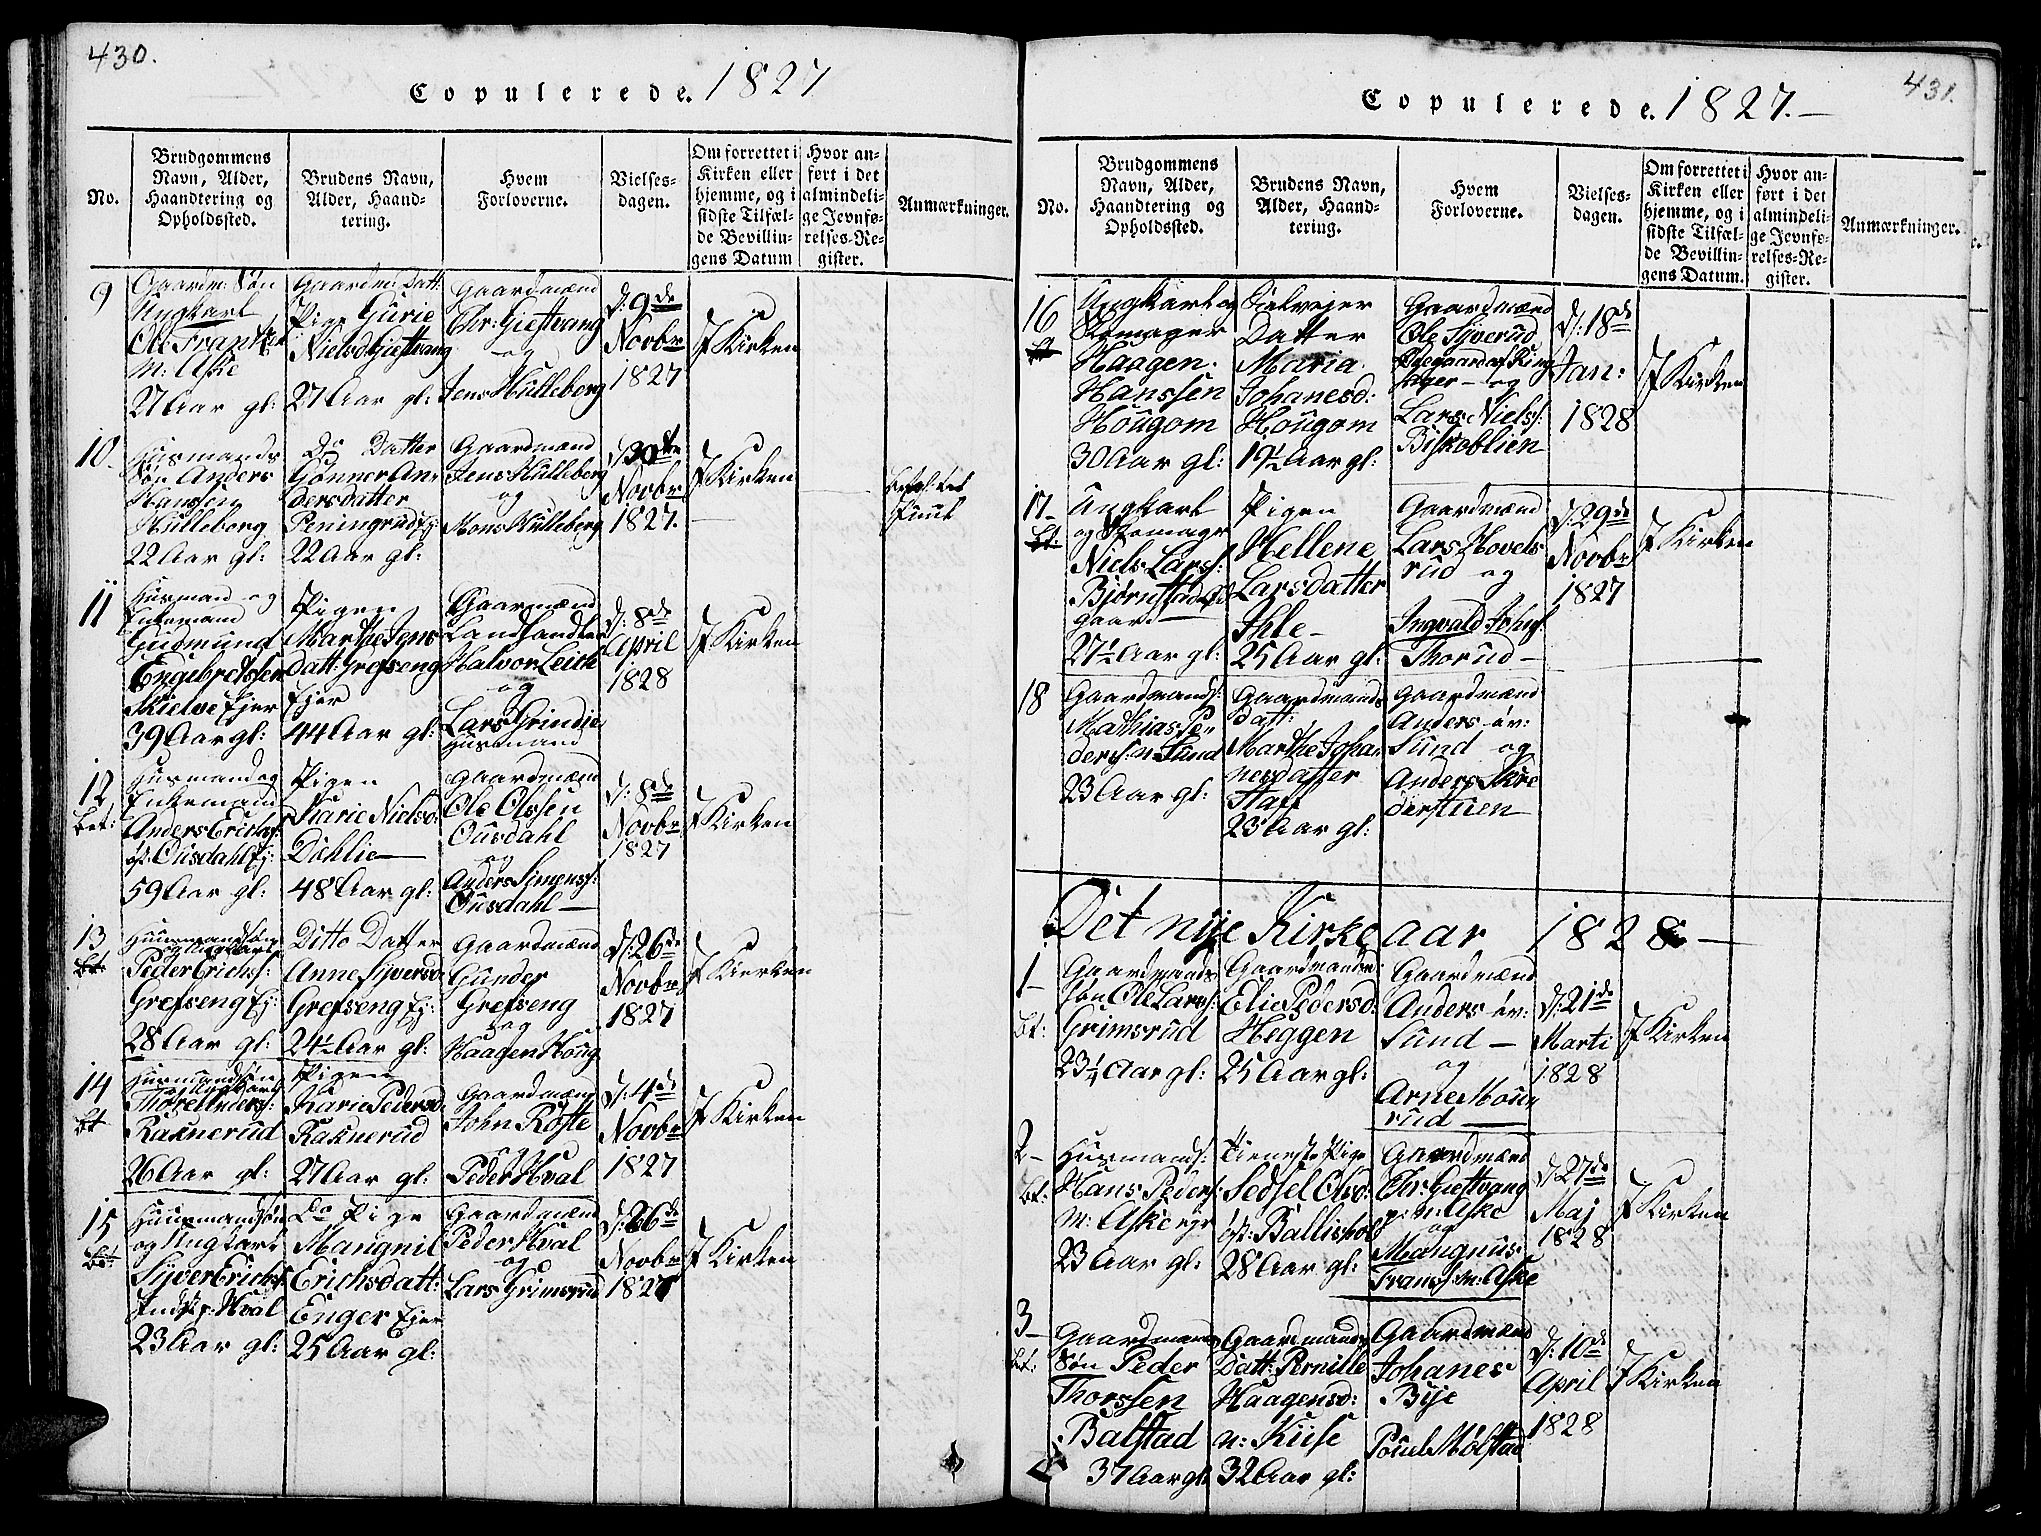 430.
Copulerede. 1827
No.
Brudgommens
Navn, Alder,
Haandtering og
Opholdssted.
Brudens Navn,
Alder, Haand-
tering.
Hvem
Forloverne.
Vielses-
dagen.
Om forrettet i
Kirken eller
hjemme, og i
sidste Tilfæl-
de Bevillin-
gens Datum
Hvor an-
ført i det
almindeli-
ge Jevnfø-
relses-Re-
gister.
Anmærkninger.
9
Gaardm: Søn
Ungkarl
Ole Frantz
m: Aske
27 Aar gl:
Gaardm Datt:
Pige Gurie
Nielsd Giestvang
27 Aar gl:
Gaardmænd
Chr: Giestvang
og
Jens Hulleberg
d: 9de
Novbr
1827
I Kirken
10
Huusmands
Søn Anders
Hansen
Hulleborg
22 Aar gl:
Do Datter
Gønner An-
dersdatter
Peningrud Ej:
22 Aar gl:
Gaardmænd
Jens Hulleberg
og
Mons Hulleberg
d 30te
Novbr
1827.
I Kirken
11
Huusmand og
Enkemand
Gudmund
Engebretssen
Skielve Ejer
39 Aar gl:
Pigen
Marthe Jens
datt: Grefseng
Ejer
44 Aar gl:
Gaarmænd
Landhandler
Halvor Leith
og
Lars Grindie
Huusmand
d: 8de
April
1828
I Kirken
12
bet:
Huusmand og
Enkemand
Anders Erichs:
øst: Ousdahl Ej:
59 Aar gl:
Pigen
Karie Nielsd:
Dahlie
48 Aar gl:
Gaardmænd
Ole Olssen
Ousdahl
og
Anders Simenss:
Ousdahl
d: 8de
Novbr
1827
I Kirken
13
bt:
Huusmandsøn
og Ungkarl
Peder Erichs:
Grefseng Ej:
28 Aar gl:
Ditto Datter
Anne Syversd:
Grefseng Ej:
24½ Aar gl:
Gaardmænd
Gunder
Grefseng
og
Haagen Houg
d: 26de
Novbr
1827
I Kierken
14
bt
Huusmandsøn
og Ungkarl
Thore Anders:
Raknerud
26 Aar gl:
Pigen
Karie Pedersd:
Raknerud
27 Aar gl:
Gaardmænd
John Røste
og
Peder Hval
d: 4de
Novbr
1827
I Kirken
15
bt:
Huusmandsøn
og Ungkarl
Syver Erichs:
Inds: p: Hval
23 Aar gl:
Do Pige
Mangnil
Erichsdatt:
Enger Ejer
25 Aar gl:
Gaardmænd
Peder Hval
og
Lars Grimsrud
d: 26de
Novbr
1827
I Kirken
431.
Copulerede. 1827.
No.
Brudgommens
Navn, Alder,
Haandtering og
Opholdssted.
Brudens Navn,
Alder, Haand-
tering.
Hvem
Forloverne.
Vielses-
dagen.
Om forrettet i
Kirken eller
hjemme, og i
sidste Tilfæl-
de Bevillin-
gens Datum.
Hvor an-
ført i det
almindeli-
ge Jevnfø-
relses-Re-
gister.
Anmærkninger.
16
bt
Ungkarl og
Skomager
Haagen
Hanssen
Hougom
30 Aar gl:
Selvejer
Datter
Maria
Johanesd:
Hougom
19½ Aar gl:
Gaardmænd
Ole Syverud
og
Lars Niels:
Biskoblien
d: 18de
Jan:
1828
I Kirken
17
bt:
Ungkarl
og Skomager
Niels Lars:
Bjørnstad
gaard
27½ Aar gl:
Pigen
Hellene
Larsdatter
Ihle
25 Aar gl:
Gaardmænd
Lars Hovels
rud og
Ingvald Johs:
Thorud
d: 29de
Novbr
1827
I Kirken
18
Gaardmands:
Mathias Pe-
dersen Sund
23 Aar gl:
Gaardmands
Datt:
Marthe Joha-
nesdatter
Staff
23 Aar gl:
Gaardmænd
Anders øv:
Sund og
Anders Skre
derstuen
Det nye Kirke aar 1828
1
bt:
Gaardmands
søn Ole Lars:
Grimsrud
23¼ Aar gl:
Gaardmands:
Elie Pedersd:
Heggen
25 Aar gl:
Gaardmænd
Anders øv:
Sund
og
Arne Moun
rud
d: 21de
Marti
1828
I Kirken
2
bt:
Huusmands:
Hans Peders:
m: Aske ejr
23 Aar gl:
Tieneste Pige
Sedsel Olsd:
øst: Ballishol
28 Aar gl:
Gaardmænd
Chr: Giestvang
p: m: Aske
og
Mangnus
Frans: m: Aske
d: 27de
Maj
1828
I Kirken
3
bt:
Gaardmands
Søn Peder
Thorssen
Balstad
37 Aar gl:
Gaardmands
Datt: Pernille
Haagensd:
n: Kiese
32 Aar gl:
Gaardmænd
Johanes
Bye
Poul Mølstad
d: 10de
April
1828
I Kirken